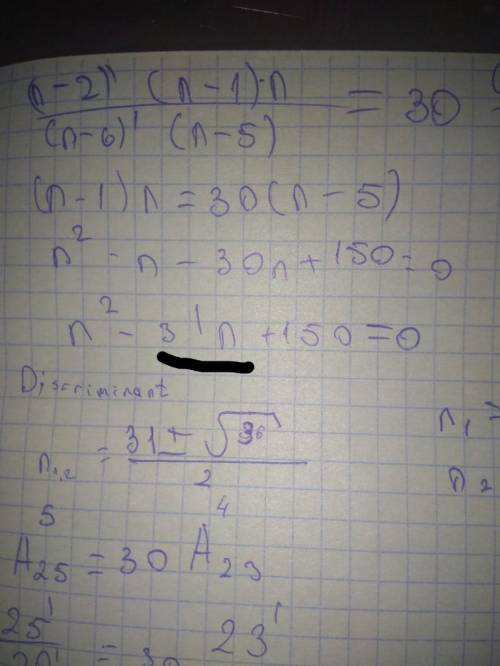 (n-2)! (n-1)·n / (n-6)! (n-5) = 30
(n-1)n = 30(n-5)
n² - n - 30n + 150 = 0
n² - 31n + 150 = 0
Discriminant
n₁,₂ = 31 ± √ / 2
n₁ =
n₂
A₂₅⁵ = 30 A₂₃⁴
25! = 30 23!